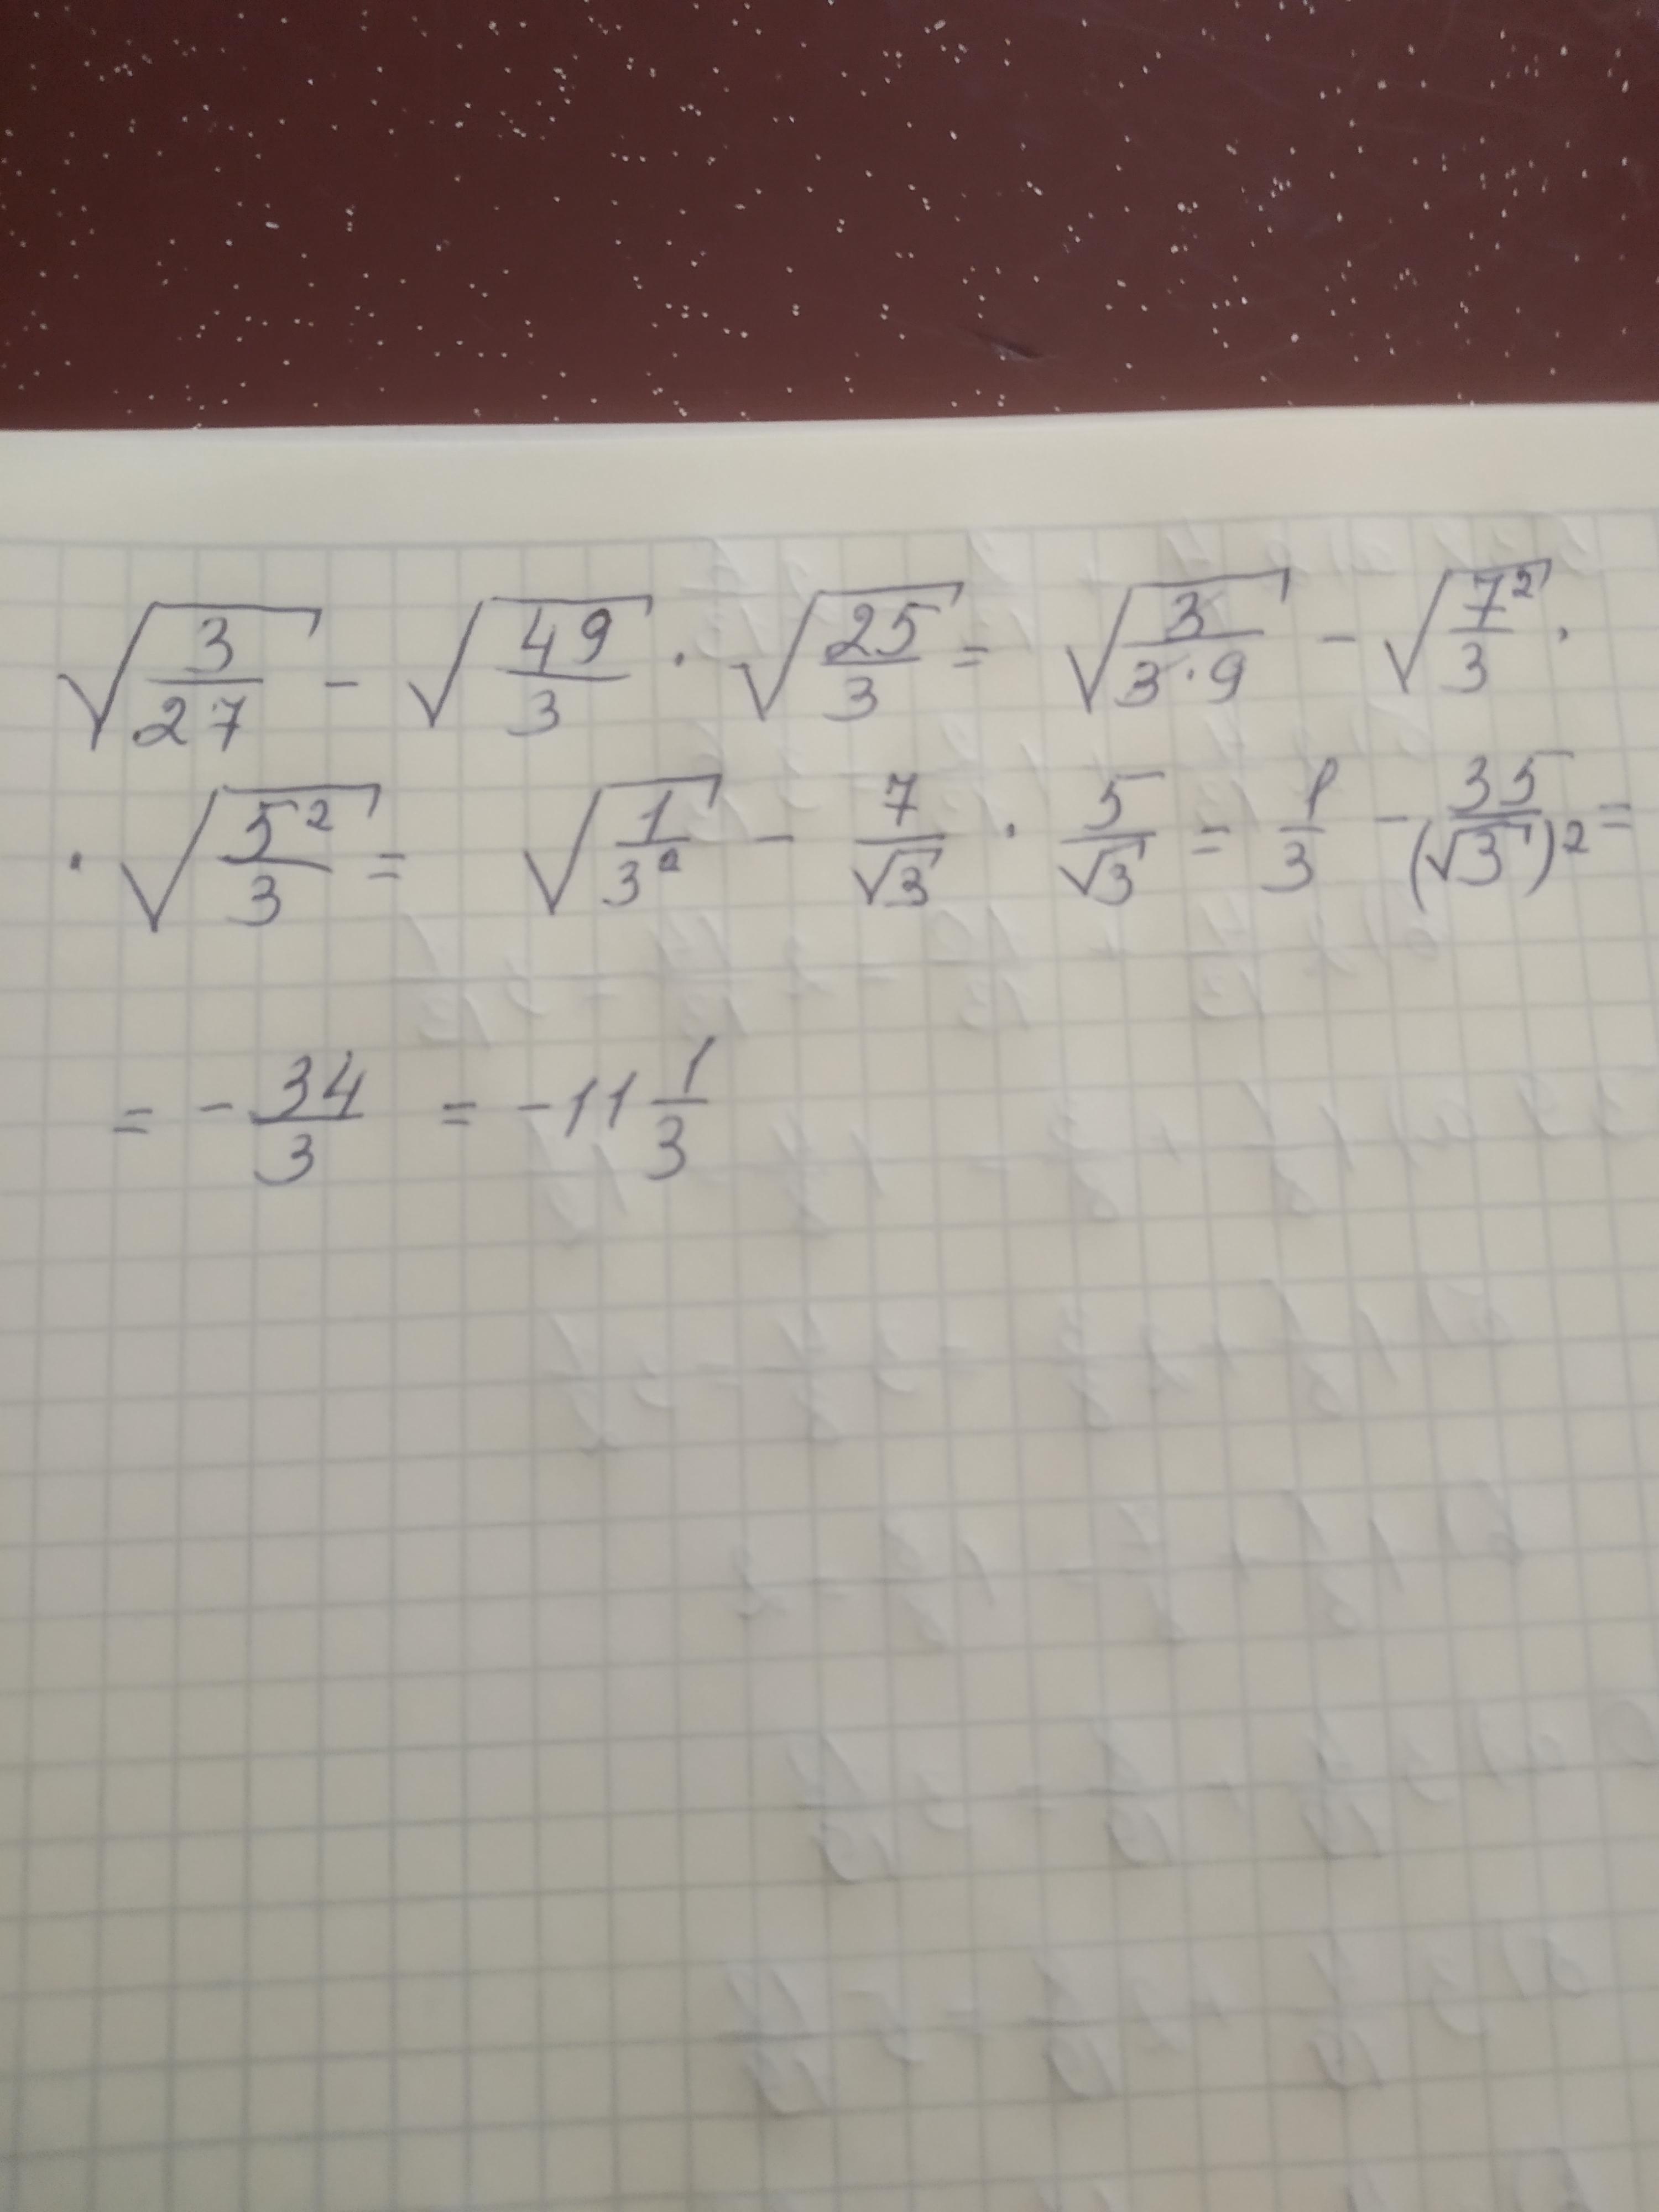 √(3/27) - √(49/3) · √(25/3) = √(3/(3·9)) - √(7²/3) ·
· √(5²/3) = √(1/3²) - 7/√3 · 5/√3 = 1/3 - 35/(√3)² =
= - 34/3 = -11 1/3